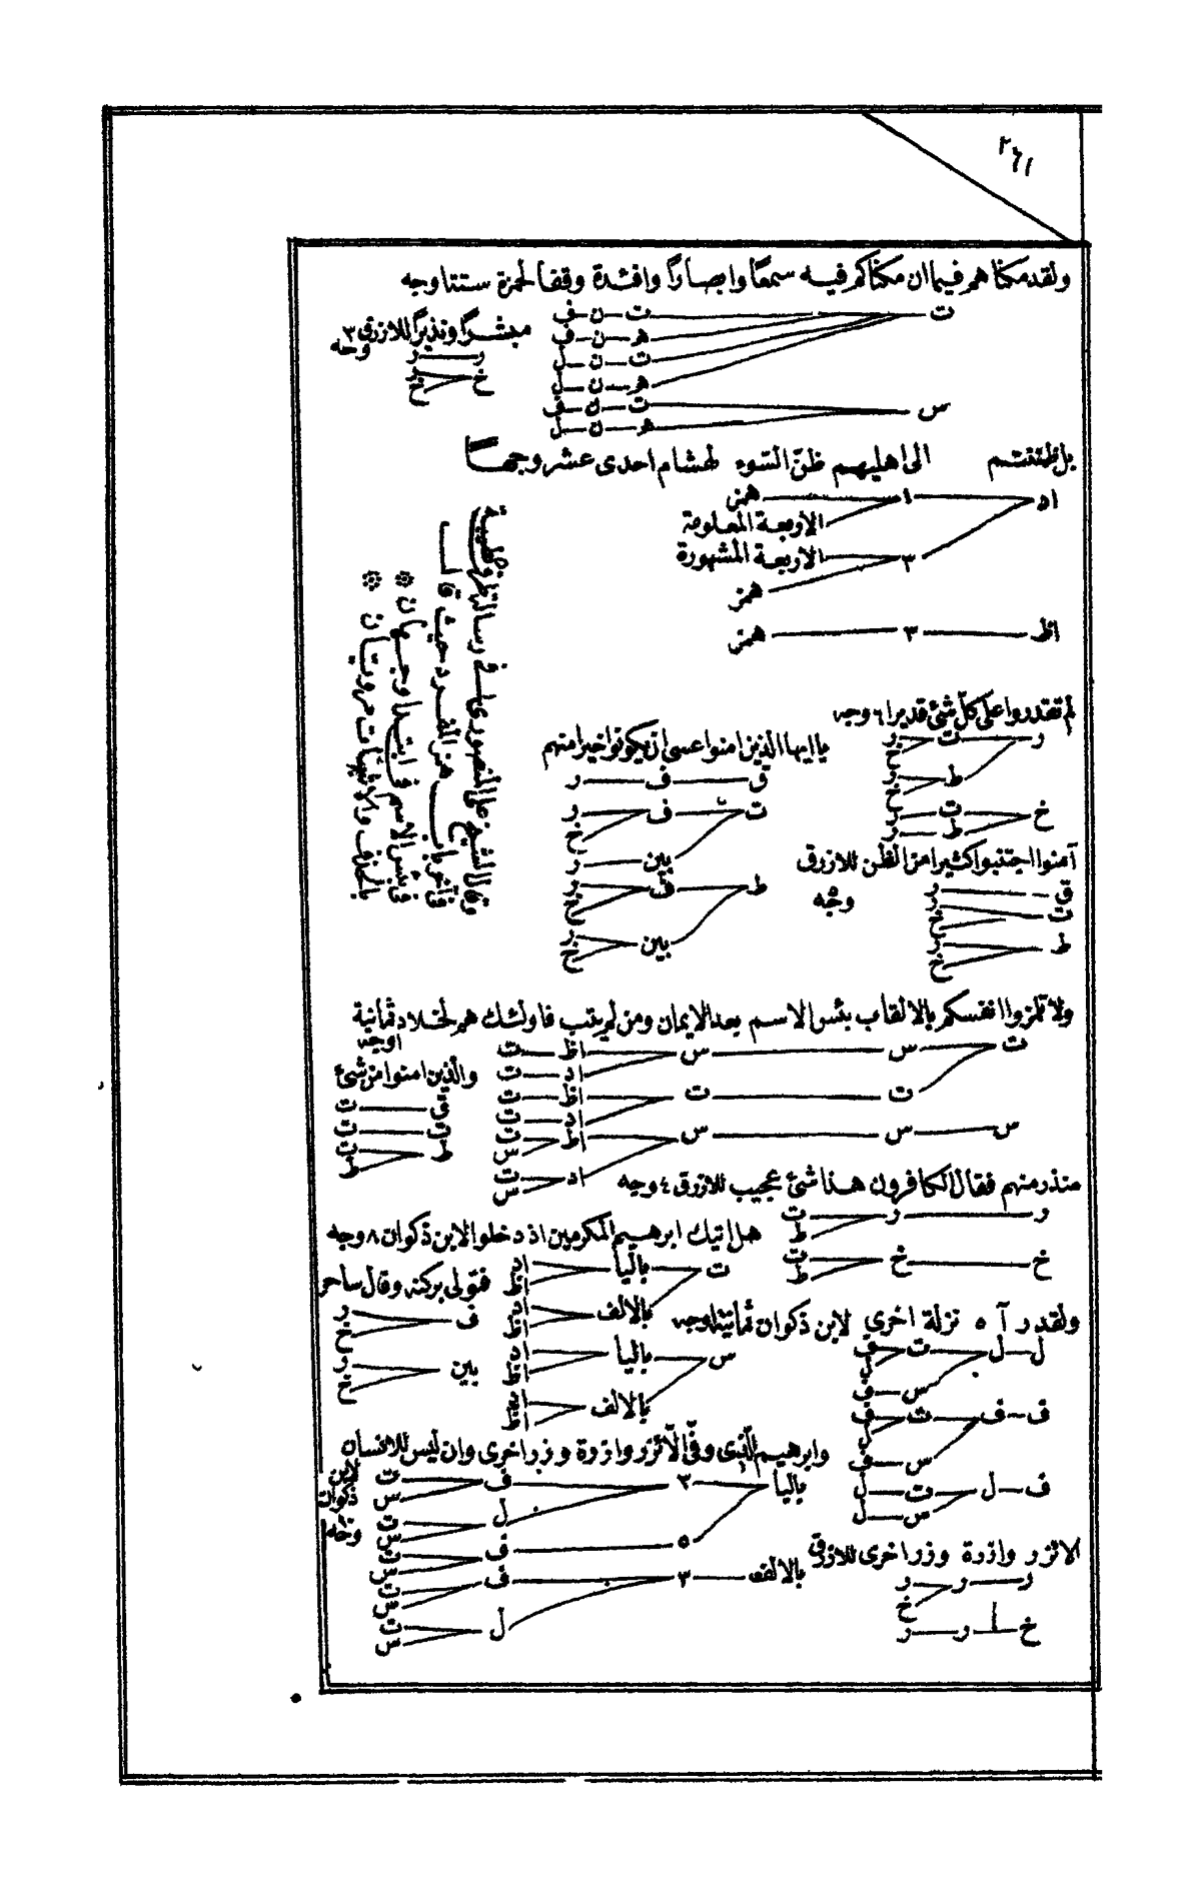 ٢٦١
ولقد مكنا هم فيما ان مكناكم فيه سمعاً وابصاراً وافئدة وقفا لحمزة ستتا وجه
ت ت ن ف
هـ ن ف
ت ن ل
هـ ن ل
س ت ن ف
هـ ن ل
مبشراً ونذيراً للازرق ٣ وجه
ر ر
خ ر
خ
بل ظننتم الى اهليهم ظنّ السّوء لهشام احدى عشر وجهاً
اد ١ همز
الاربعة المعلومة
٣ الاربعة المشهورة
همز
اظ ٣ همز
وقال الشيخ على المنصورى في رسالته طرق طيبة
في آخر باب همز المفرد حيث قال
في بئس الاسم في ابتدا وجهان
بالحذف والاثبات مرويتان
لم تقدروا على كلّ شئ قديرا ٦ وجه
ر ت ر
خ
ط ر
خ
خ ت ر
ط ر
ياايها الذين امنوا عسى ان يكونوا خيرا منهم
ق ف ر
ت ف ر
خ
بين ر
ط ف ر
خ
بين ر
خ
آمنوا اجتنبوا كثيرا من الظن للازرق ٥ وجه
ق ر
ت ر
خ
ط ر
خ
ولا تلمزوا انفسكم بالالقاب بئس الاسم بعد الايمان ومن لم يتب فاولئك هم لخلاد ثمانية اوجه
ت س س اظ ت
اد ت
ت ت اظ ت
اد ت
س س س اظ ت
س
اد ت
س
والذين امنوا من شئ
ق ت
ت ت
ط ت
ط
منذر منهم فقال الكافرون هذا شئ عجيب للازرق ٤ وجه
ر ر ت
ط
خ خ ت
ط
هل اتيك ابرهيم المكرمين اذ دخلوا لابن ذكوان ٨ وجه
ت باليا اد
اظ
بالالف اد
اظ
س باليا اد
اظ
بالالف اد
اظ
فتولى بركنه وقال ساحر
ف ر
خ
بين ر
خ
ولقد ر آ ه نزلة اخرى لابن ذكوان ثمانية اوجه
ل ل ت ف
ل
س ف
ف ف ت ف
ل
س ف
ف ل ت ل
س ل
وابرهيم الّذى وفّى الّا تزر وازرة وزر اخرى وان ليس للانسان لابن ذكوان ١٠ وجه
باليا ٣ ف ت
س
ل ت
س
٥ ف ت
س
بالالف ٣ ف ت
س
ل ت
س
الا تزر وازرة وزر اخرى للازرق
ر ر ر
خ
خ ر ر